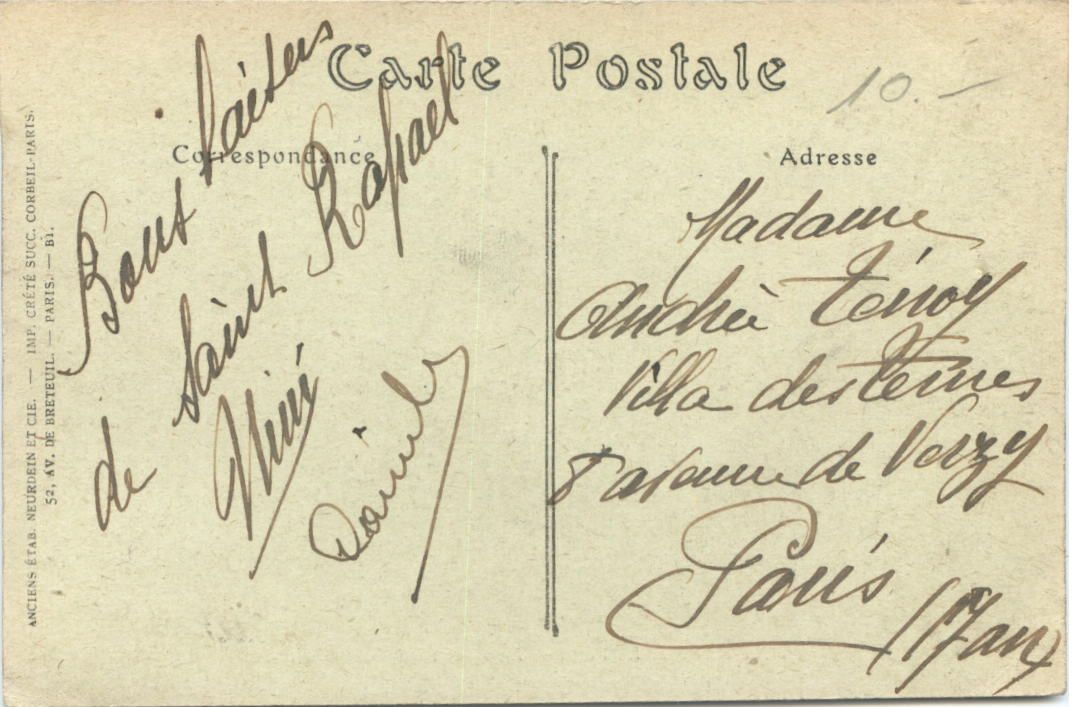 Carte Postale
10.-
Correspondance
Bons baisers
de Saint Raphael
Mimi
Adresse
Madame
Andrée
Villa des Ternes
8 avenue de Verzy
Paris
(17 arr)
ANCIENS ÉTAB. NEURDEIN ET CIE. — IMP. CRÉTÉ SUCC. CORBEIL-PARIS.
52, AV. DE BRETEUIL. — PARIS. — BI.